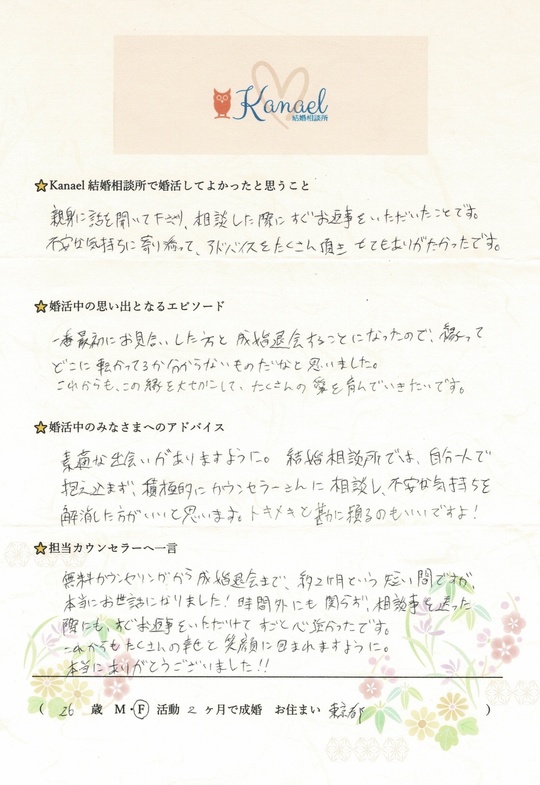 Kanael
結婚相談所
Kanael 結婚相談所で婚活してよかったと思うこと
親身に話を聞いて下さり、相談した際にすぐお返事をいただいたことです。
不安な気持ちに寄り添って、アドバイスをたくさん頂き とてもありがたかったです。
婚活中の思い出となるエピソード
一番最初にお見合いした方と 成婚退会することになったので、縁って
どこに転がってるか分からないものだなと思いました。
これからも、この縁を大切にして、たくさんの愛を育んでいきたいです。
婚活中のみなさまへのアドバイス
素適な出会いがありますように。 結婚相談所では、自分一人で
抱え込まず、積極的にカウンセラーさんに相談し、不安な気持ちを
解消した方がいいと思います。トキメキと勘に頼るのもいいですよ！
担当カウンセラーへ一言
無料カウンセリングから成婚退会まで、約2ヶ月という短い間ですが、
本当にお世話になりました！時間外にも関らず、相談事を送った
際にも、すぐお返事をいただけて すごく心強かったです。
これからもたくさんの幸せと笑顔に包まれますように。
本当にありがとうございました！！
( 26 歳 M・F 活動 2 ヶ月で成婚 お住まい 東京都 )